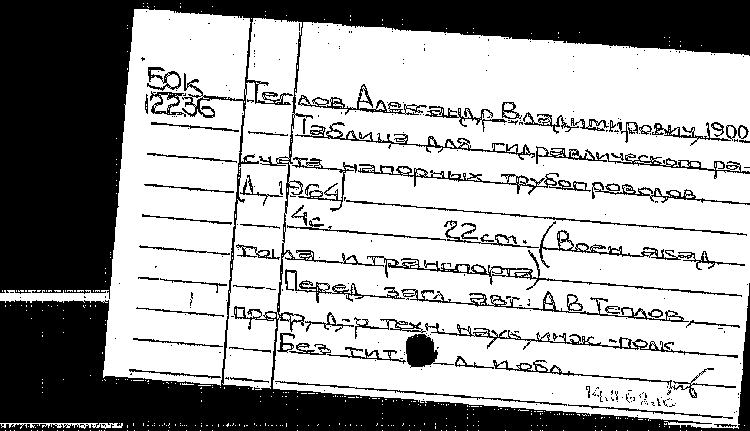 50к
12236
Теплов, Александр Владимирович, 1900
Таблица для гидравлического ра-
счета напорных трубопроводов.
[Л., 1964]
4с. 22 cm. (Воен. акад.
тыла и транспорта)
Перед загл. авт.: А.В. Теплов,
проф., д-р техн. наук, инж.-полк.
Без тит. л. и обл.